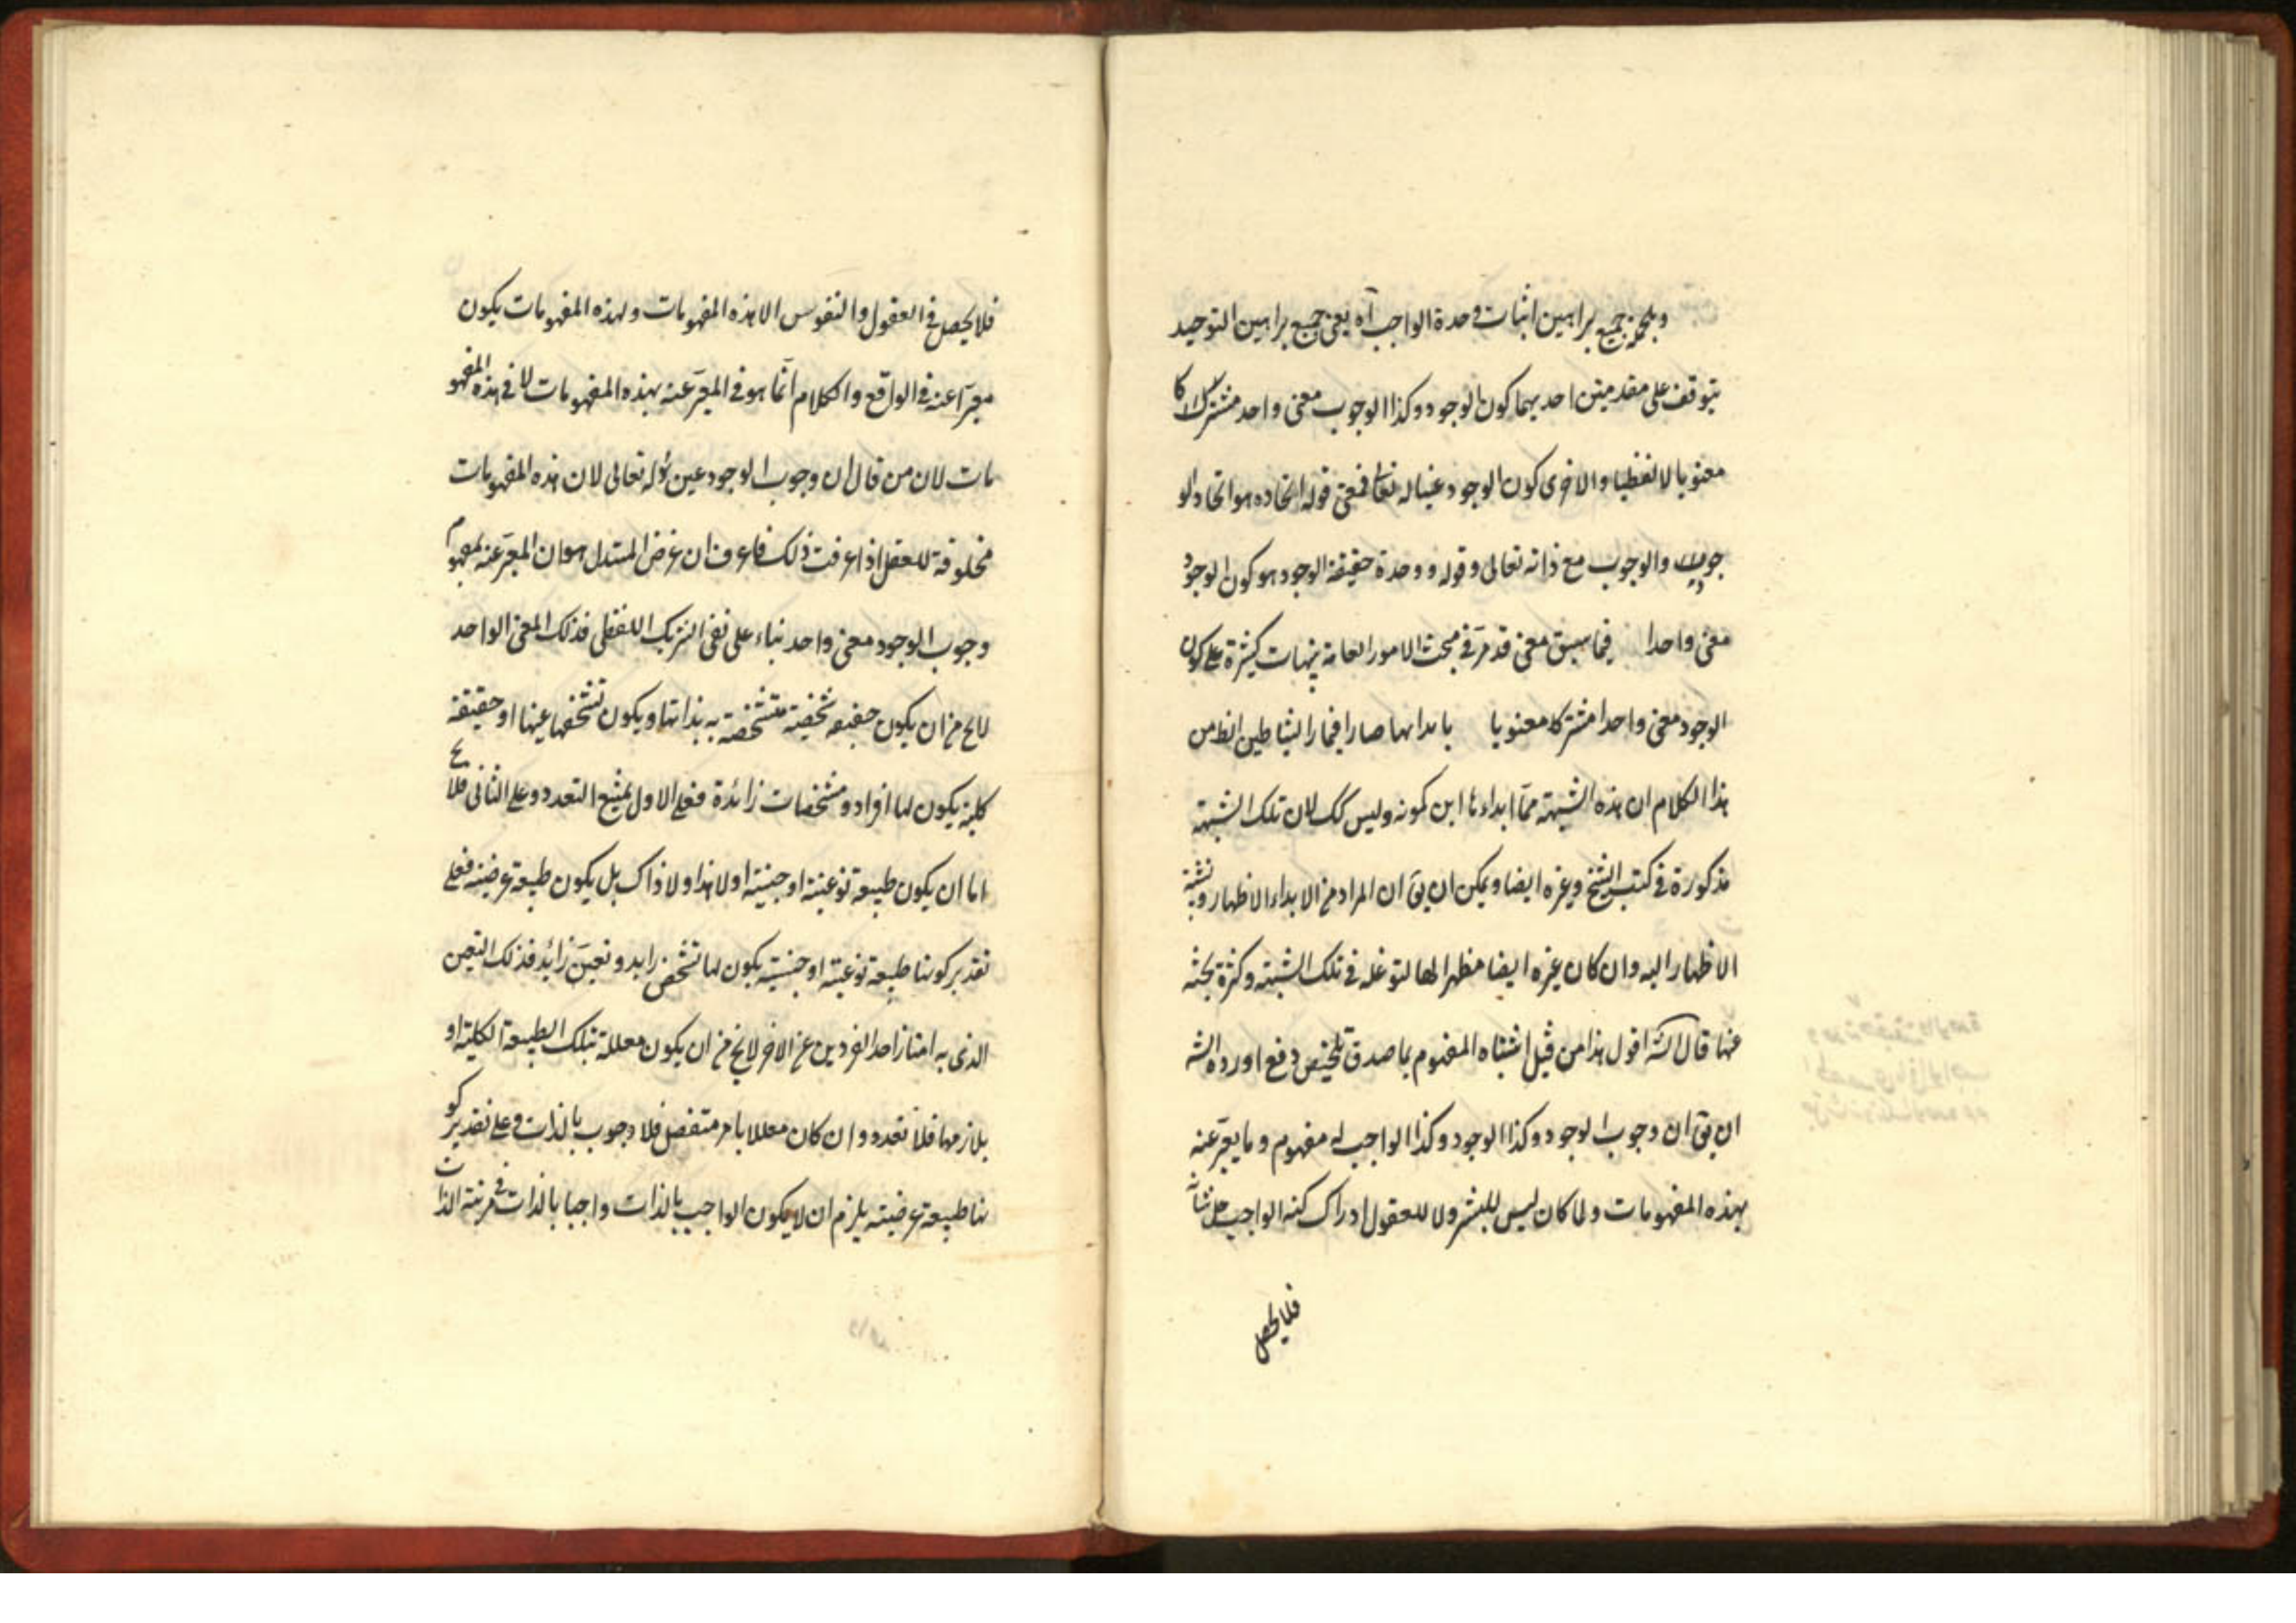 وبالجملة جميع براهين اثبات وحدة الواجب آه يعنى جميع براهين التوحيد
يتوقف على مقدمتين احديهما كون الوجود وكذا الوجوب معنى واحد مشتركا
معنويا لا لفظيا والاخرى كون الوجود عينا له تعالى فمعنى قوله اتحاده هو اتحاد الو
جود والوجوب مع ذاته تعالى وقوله ووحدة حقيقة الوجود هو كون الوجود
معنى واحدا فيما سبق معنى قد مرّ فى مبحث الامور العامة تنبيهات كثيرة على كون
الوجود معنى واحدا مشتركا معنويا بابدائها صار افتخار الشياطين الظ من
هذا الكلام ان هذه الشبهة ممّا ابداءها ابن كمونه وليس كك لان تلك الشبهة
مذكورة فى كتب الشيخ وغيره ايضا ويمكن ان يق ان المراد من الابداء الاظهار ونسبة
الاظهار اليه وان كان غيره ايضا مظهرا لها لتوغله فى تلك الشبهة وكثرة بحثه
عنها قال الش اقول هذا من قبيل اشتباه المفهوم بما صدق تلخيص دفع اورده الش
ان يق ان وجوب الوجود وكذا الوجود وكذا الواجب له مفهوم وما يعبّر عنه
بهذه المفهومات ولما كان ليس للبشر ولا للعقول ادراك كنه الواجب جل شأنه
فلا يحصل
فلا يحصل فى العقول والنفوس الا هذه المفهومات ولهذه المفهومات يكون
معبّرا عنه فى الواقع والكلام انّما هو فى المعبّر عنه بهذه المفهومات لا فى هذه المفهو
مات لان من قال ان وجوب الوجود عين له تعالى لان هذه المفهومات
مخلوقة للعقل اذا عرفت ذلك فاعرف ان غرض المستدل هو ان المعبّر عنه بمفهوم
وجوب الوجود معنى واحد بناء على نفى الشريك اللفظى فذلك المعنى الواحد
لا يخ من ان يكون حقيقة شخصية متشخصة به بذاتها ويكون تشخصها عينها او حقيقة
كلية يكون لها افراد ومشخصات زائدة فعلى الاول يمتنع التعدد وعلى الثانى فلا يخ
اما ان يكون طبيعة نوعية او جنسية او لا هذا ولا ذاك بل يكون طبيعة عرضية فعلى
تقدير كونها طبيعة نوعية او جنسية يكون لها تشخص زايد وتعيّن زائد فذلك التعين
الذى به امتاز احد الفردين عن الاخر لا يخ من ان يكون معللة بتلك الطبيعة الكلية او
بلازمها فلا تعدد وان كان معللا بامر منفصل فلا وجوب بالذات وعلى تقدير كو
نها طبيعة عرضية يلزم ان لا يكون الواجب بالذات واجبا بالذات فى مرتبة الذات